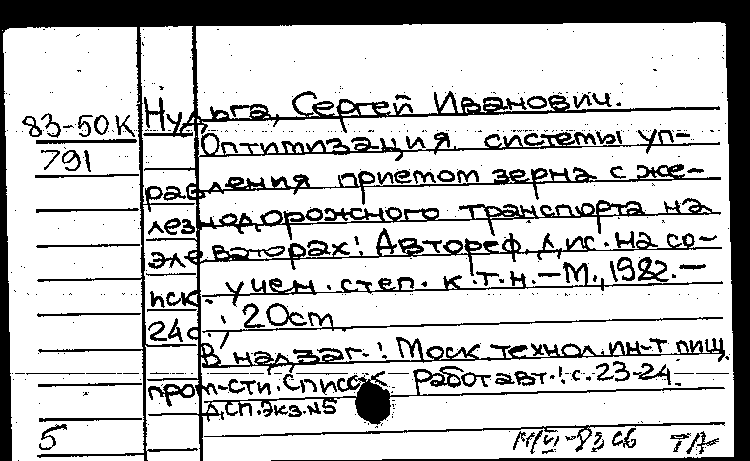 Нудьга, Сергей Иванович.
83-50К
791
Оптимизация системы уп-
равления приемом зерна с же-
лезнодорожного транспорта на
элеваторах: Автореф. дис. на со-
иск. учен. степ. к.т.н. — М., 1982. —
24с.; 20см.
В надзаг.: Моск технол. ин-т пищ.
пром-сти. Список работ авт.: с. 23-24.
Д,СП.ЭКЗ.№5
5
83 СБ